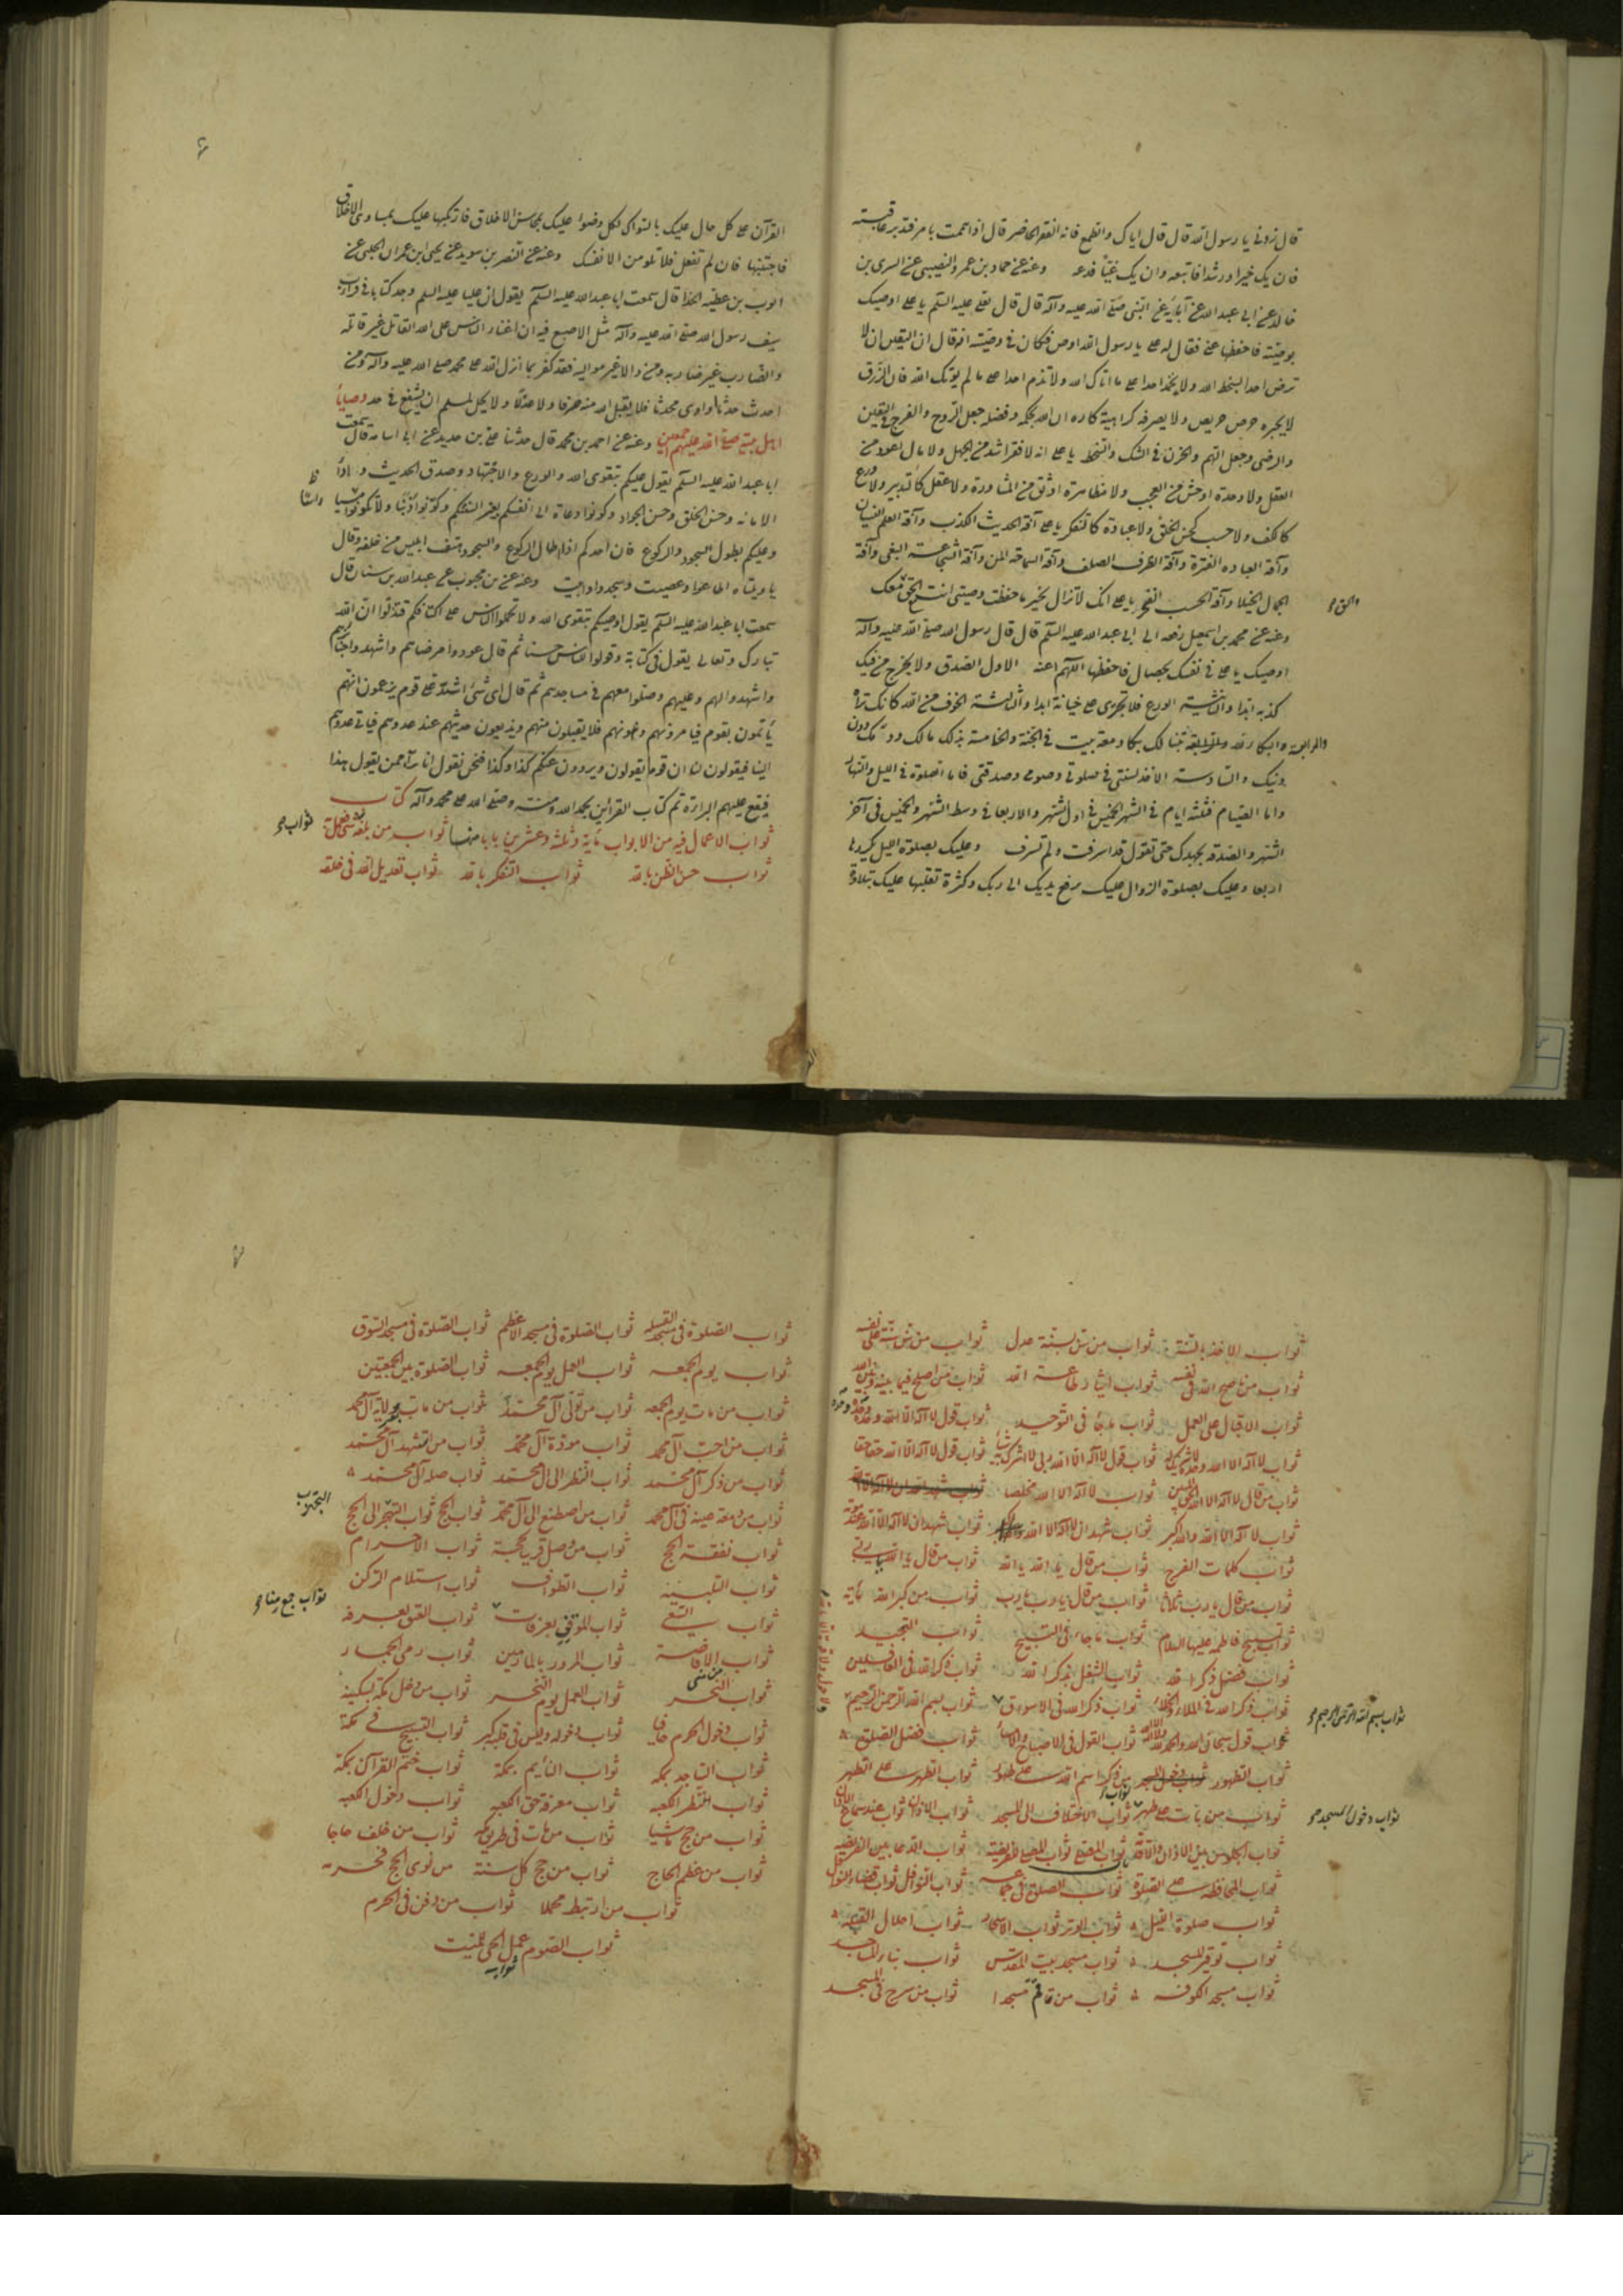 قال زدنی یا رسول الله قال قال ایاک والطمع فانه الفقر الحاضر قال اذا هممت بامر فتدبر عاقبته
فان یک خیرا ورشدا فاتبعه وان یک غیّاً فدعه وعنه عن حماد بن عمرو النصیبی عن السری بن
خالد عن ابی عبد الله عن آبائه عن النبی صلی الله علیه وآله قال قال لعلی علیه السلم یا علی اوصیک
بوصیّته فاحفظها عنی فقال له علی یا رسول الله اوص فکان فی وصیّته انه قال ان الیقین ان لا
ترضی احدا بسخط الله ولا تحمد احدا علی ما اتاک الله ولا تذم احدا علی ما لم یؤتک الله فان الرزق
لا یجره حرص حریص ولا یصرفه کراهیة کاره ان الله بحکمه وفضله جعل الروح والفرج فی الیقین
والرضی وجعل الهم والحزن فی الشک والسخط یا علی انه لا فقر اشد من الجهل ولا مال اعود من
العقل ولا وحدة اوحش من العجب ولا مظاهرة اوثق من المشاورة ولا عقل کالتدبیر ولا ورع
کالکف ولا حسب کحسن الخلق ولا عبادة کالتفکر یا علی آفة الحدیث الکذب وآفة العلم النسیان
وآفة العباده الفترة وآفة الظرف الصلف وآفة السماحة المن وآفة الشجاعة البغی وآفة
الجمال الخیلا وآفة الحسب الفخر یا علی انک لا تزال بخیر ما حفظت وصیتی انت مع الحق معک
والحق
وعنه عن محمد بن اسمعیل رفعه الی ابی عبد الله علیه السلم قال قال رسول الله صلی الله علیه وآله
اوصیک یا علی فی نفسک بخصال فاحفظها اللهم اعنه الاول الصدق ولا یخرج من فیک
کذبة ابدا والثانیة الورع فلا تجتری علی خیانة ابدا والثالثة الخوف من الله کانک تراه
والرابعة البکاء لله
دینک والسادسة الاخذ بسنتی فی صلوتی وصومی وصدقتی فاما الصلوة فی اللیل والنهار
واما الصیام فثلثة ایام فی الشهر الخمیس فی اول الشهر والاربعا فی وسط الشهر والخمیس فی آخر
الشهر والصدقة بجهدک حتی تقول قد اسرفت ولم تسرف وعلیک بصلوة اللیل یکررها
اربعا وعلیک بصلوة الزوال علیک برفع یدیک الی ربک وکثرة تقلبها علیک بتلاوة
القرآن علی کل حال علیک بالسواک لکل وضوا علیک بمحاسن الاخلاق فارتکبها علیک بمساوی الاخلاق
فاجتنبها فان لم تفعل فلا تلومن الا نفسک وعنه عن النضر بن سوید عن یحیی ابن عمران الحلبی عن
ایوب بن عطیه الحذا قال سمعت ابا عبد الله علیه السلم یقول ان علیا علیه السلم وجد کتابا فی قراب
سیف رسول الله صلی الله علیه وآله مثل الاصبع فیه ان اعتی الناس علی الله القاتل غیر قاتله
والضارب غیر ضاربه ومن والا غیر موالیه فقد کفر بما انزل الله علی محمد صلی الله علیه وآله ومن
احدث حدثا او اوی محدثا فلا یقبل الله منه صرفا ولا عدلا ولا یحل لمسلم ان یشفع فی حد وصایا
اهل بیته صلی الله علیهم اجمعین وعنه عن احمد بن محمد قال حدثنا علی بن حدید عن ابی اسامة قال سمعت
ابا عبد الله علیه السلم یقول علیکم بتقوی الله والورع والاجتهاد وصدق الحدیث واداء
الامانه وحسن الخلق وحسن الجوار وکونوا دعاة الی انفسکم بغیر السنتکم وکونوا زینا ولا تکونوا شینا
وعلیکم بطول السجود والرکوع فان احدکم اذا اطال الرکوع والسجود هتف ابلیس من خلفه وقال
یا ویلتاه اطاعوا وعصیت وسجدوا وابیت وعنه عن بن محبوب عن عبد الله بن سنان قال
سمعت ابا عبد الله علیه السلم یقول اوصیکم بتقوی الله ولا تحملوا الناس علی اکتافکم فتذلوا ان الله
تبارک وتعالی یقول فی کتابه وقولوا للناس حسنا ثم قال عودوا مرضاهم واشهدوا جنائزهم
واشهدوا لهم وعلیهم وصلوا معهم فی مساجدهم ثم قال ای شیء اشد علی قوم یزعمون انهم
یأتمون بقوم فیامرونهم وینهونهم فلا یقبلون منهم ویذیعون حدیثهم عند عدوهم فیاتی عدوهم
الینا فیقولون لنا ان قوما یقولون ویروون عنکم کذا وکذا فنحن نقول انا برآء ممن یقول هذا
فیقع علیهم البراءة تم کتاب القراین بحمد الله ومنه وصلی الله علی محمد وآله کتاب
ثواب الاعمال فیه من الابواب مأیة وثلثة وعشرین بابا منها ثواب من بلغه
ثواب حسن الظن بالله ثواب التفکر بالله ثواب تعدیل الله فی خلقه
ثواب الاخذ بالسنة ثواب من سن سنة عدل ثواب من سن سنة علی نفسه
ثواب من ناصح الله فی نفسه ثواب ایثار طاعة الله ثواب من اصلح فیما بینه وبین الله
ثواب الاقبال علی العمل ثواب ما جا فی التوحید ثواب قول لا اله الا الله وحده
ثواب لا اله الا الله وحده لا شریک له ثواب قول لا اله الا الله ربی لا اشرک به ثواب قول لا اله الا الله حقا حقا
ثواب من قال لا اله الا الله الحق المبین ثواب لا اله الا الله مخلصا
ثواب لا اله الا الله والله اکبر ثواب شهد ان لا اله الا الله ثواب شهد ان لا اله الا الله عند موته
ثواب کلمات الفرج ثواب من قال یا الله یا الله ثواب من قال یا الله یا ربی
ثواب من قال یا رب ثلاثا ثواب من قال یا رب یا رب ثواب من کبر الله مأیة
ثواب تسبیح فاطمة علیها السلام ثواب ما جاء فی التسبیح ثواب التمجید
ثواب فضل ذکر الله ثواب الشغل بذکر الله ثواب ذکر الله فی الغافلین
ثواب ذکر الله فی الملاء والخلاء ثواب ذکر الله فی الاسواق ثواب بسم الله الرحمن الرحیم
ثواب بسم الله الرحمن الرحیم
ثواب قول سبحان الله والحمد لله ثواب القول فی الاصباح والامساء ثواب فضل الصلوة
ثواب الطهور ذکر اسم الله علی طهور ثواب الطهر علی الطهر
ثواب من بات علی طهر ثواب الاختلاف الی المسجد ثواب الاذان ثواب عند سماع الاذان
ثواب دخول المسجد
ثواب الجلوس بین الاذان والاقامة ثواب المصلی ثواب المصلی الفریضة ثواب الدعا بین الفریضه
ثواب المحافظه علی الصلوة ثواب الصلوة فی جماعة ثواب النوافل ثواب قضاء النوافل
ثواب صلوة اللیل ثواب الوتر ثواب الاسحار ثواب اجلال القبلة
ثواب توقیر المسجد ثواب مسجد بیت المقدس ثواب بناء المساجد
ثواب مسجد الکوفه ثواب من قم مسجدا ثواب من سرج فی المسجد
ثواب الصلوة فی مسجد القبیله ثواب الصلوة فی مسجد الاعظم ثواب الصلوة فی مسجد السوق
ثواب یوم الجمعه ثواب العمل یوم الجمعه ثواب الصلوة بین الجمعتین
ثواب من مات یوم الجمعه ثواب من تولی آل محمد ثواب من مات بولایة آل محمد
ثواب من احب آل محمد ثواب مودة آل محمد ثواب من استشهد آل محمد
ثواب من ذکر آل محمد ثواب النظر الی آل محمد ثواب صلة آل محمد
ثواب من دمعت عینه فی آل محمد ثواب من اصطنع الی آل محمد ثواب الحج ثواب التجهز الی الحج
ثواب نفقة الحج ثواب من وصل قریبا بحجة ثواب الاحرام
ثواب التلبیة ثواب الطواف ثواب استلام الرکن
ثواب السعی ثواب الموقف بعرفات ثواب العتق بعرفه
ثواب جمع ومنا
ثواب الافاضة من منی ثواب المرور بالمازمین ثواب رمی الجمار
ثواب النحر ثواب العمل یوم النحر ثواب من دخل مکة بسکینة
ثواب دخول الحرم حافیا ثواب دخوله ولیس فی قلبه کبر ثواب التسبیح فی مکة
ثواب الساجد بمکه ثواب النائم بمکة ثواب ختم القرآن بمکة
ثواب النظر الکعبه ثواب معرفة حق الکعبه ثواب دخول الکعبه
ثواب من حج ماشیا ثواب من مات فی طریق مکه ثواب من خلف حاجا
ثواب من عظم الحاج ثواب من حج کل سنة من نوی الحج فحرمه
ثواب من ارتبط محملا ثواب من دفن فی الحرم
ثواب الصوم عمل الحی للمیت
ثواب